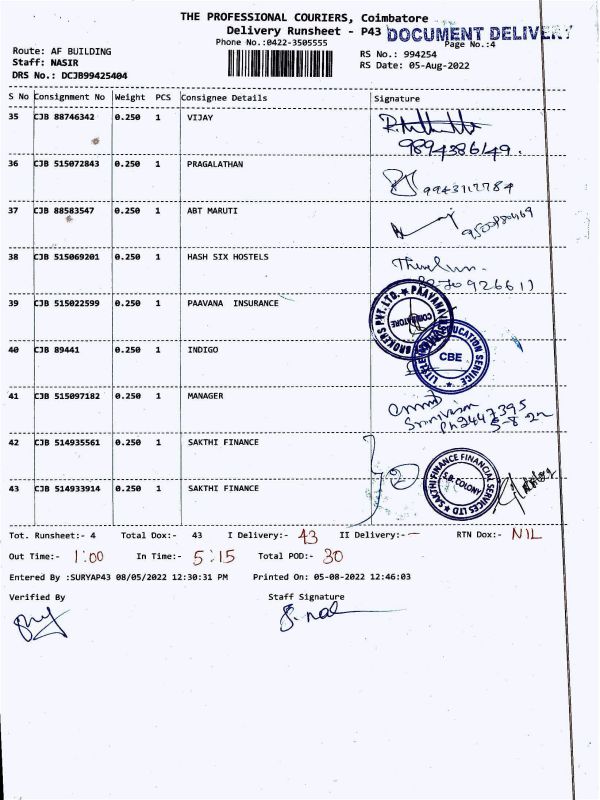 THE PROFESSIONAL COURIERS, Coimbatore
Delivery Runsheet - P43 DOCUMENT DELIVERY
Phone No.:0422-3505555
Page No.:4
Route: AF BUILDING
Staff: NASIR
DRS No.: DCJB99425404
RS No.: 994254
RS Date: 05-Aug-2022
S No Consignment No Weight PCS Consignee Details Signature
35 CJB 88746342 0.250 1 VIJAY
9894386149.
36 CJB 515072843 0.250 1 PRAGALATHAN
37 CJB 88583547 0.250 1 ABT MARUTI
38 CJB 515069201 0.250 1 HASH SIX HOSTELS
39 CJB 515022599 0.250 1 PAAVANA INSURANCE
PAAVANA BROKERS PVT.LTD. COIMBATORE
40 CJB 89441 0.250 1 INDIGO
LITTLE EDUCATION SERVICE CBE
41 CJB 515097182 0.250 1 MANAGER
Ph 2447395
5-8-22
42 CJB 514935561 0.250 1 SAKTHI FINANCE
2
SAKTHI FINANCE FINANCIAL SERVICES LTD S.B. COLONY
43 CJB 514933914 0.250 1 SAKTHI FINANCE
Tot. Runsheet:- 4 Total Dox:- 43 I Delivery:- 43 II Delivery:- - RTN Dox:- NIL
Out Time:- 1:00 In Time:- 5:15 Total POD:- 30
Entered By :SURYAP43 08/05/2022 12:30:31 PM Printed On: 05-08-2022 12:46:03
Verified By Staff Signature